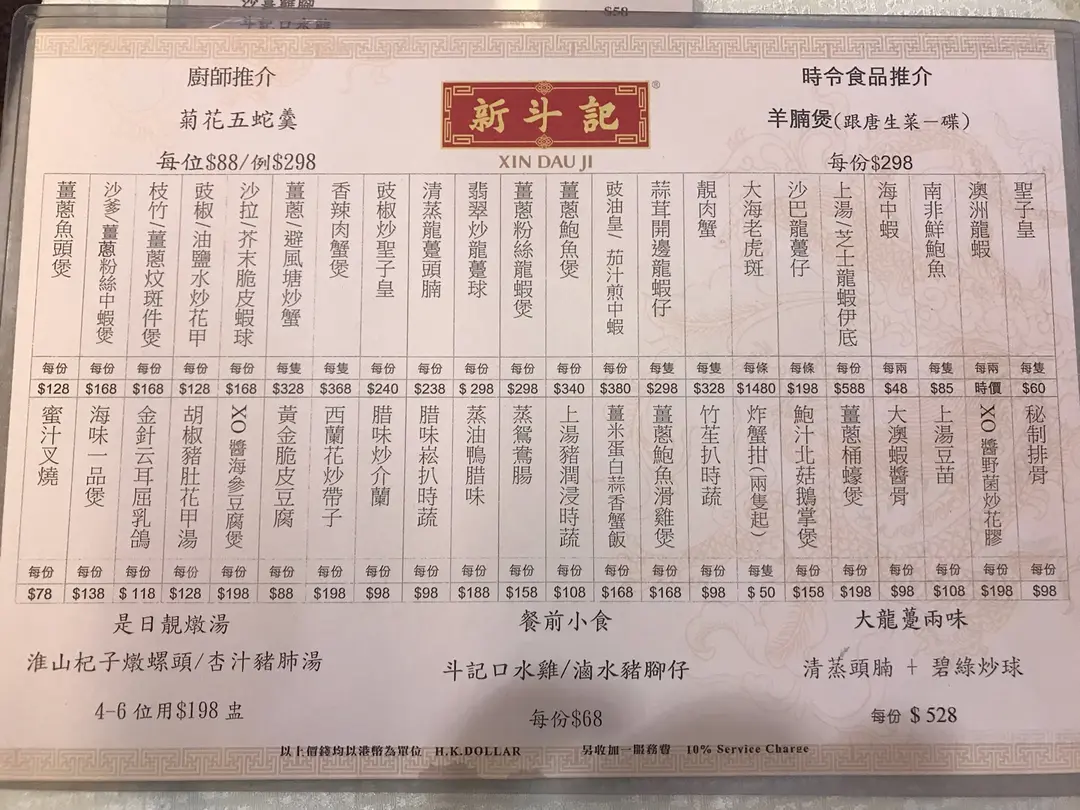 廚師推介
菊花五蛇羹
每位$88/例$298
新斗記
®
XIN DAU JI
時令食品推介
羊腩煲(跟唐生菜一碟)
每份$298
聖子皇 每隻 $60
澳洲龍蝦 每兩 時價
南非鮮鮑魚 每隻 $85
海中蝦 每兩 $48
上湯/芝士龍蝦伊底 每份 $588
沙巴龍躉仔 每條 $198
大海老虎斑 每條 $1480
靚肉蟹 每隻 $328
蒜茸開邊龍蝦仔 每隻 $298
豉油皇/茄汁煎中蝦 每份 $380
薑蔥鮑魚煲 每份 $340
薑蔥粉絲龍蝦煲 每份 $298
翡翠炒龍躉球 每份 $298
清蒸龍躉頭腩 每份 $238
豉椒炒聖子皇 每份 $240
香辣肉蟹煲 每隻 $368
薑蔥/避風塘炒蟹 每隻 $328
沙拉/芥末脆皮蝦球 每份 $168
豉椒/油鹽水炒花甲 每份 $128
枝竹/薑蔥炆斑件煲 每份 $168
沙爹/薑蔥粉絲中蝦煲 每份 $168
薑蔥魚頭煲 每份 $128
秘制排骨 每份 $98
XO醬野菌炒花膠 每份 $198
上湯豆苗 每份 $108
大澳蝦醬骨 每份 $98
薑蔥桶蠔煲 每份 $198
鮑汁北菇鵝掌煲 每份 $158
炸蟹拑(兩隻起) 每隻 $50
竹笙扒時蔬 每份 $98
薑蔥鮑魚滑雞煲 每份 $168
薑米蛋白蒜香蟹飯 每份 $168
上湯豬潤浸時蔬 每份 $108
蒸鴛鴦腸 每份 $158
蒸油鴨腊味 每份 $188
腊味崧扒時蔬 每份 $98
腊味炒介蘭 每份 $98
西蘭花炒帶子 每份 $198
黃金脆皮豆腐 每份 $88
XO醬海參豆腐煲 每份 $198
胡椒豬肚花甲湯 每份 $128
金針云耳屈乳鴿 每份 $118
海味一品煲 每份 $138
蜜汁叉燒 每份 $78
是日靚燉湯
淮山杞子燉螺頭/杏汁豬肺湯
4-6 位用$198 盅
餐前小食
斗記口水雞/滷水豬腳仔
每份$68
大龍躉兩味
清蒸頭腩 + 碧綠炒球
每份 $528
以上價錢均以港幣為單位 H.K.DOLLAR 另收加一服務費 10% Service Charge